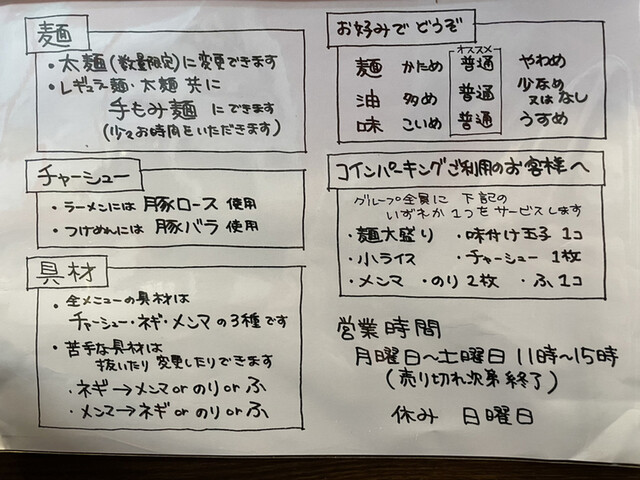 麺
・太麺(数量限定)に変更できます
・レギュラー麺・太麺 共に
手もみ麺 にできます
(少々お時間をいただきます)
チャーシュー
・ラーメンには 豚ロース 使用
・つけめんには 豚バラ 使用
具材
・全メニューの具材は
チャーシュー・ネギ・メンマ の3種です
・苦手な具材は
抜いたり 変更したりできます
・ネギ→メンマ or のり or ふ
・メンマ→ネギ or のり or ふ
お好みで どうぞ
オススメ
麺 かため 普通 やわめ
油 多め 普通 少なめ
又は なし
味 こいめ 普通 うすめ
コインパーキングご利用のお客様へ
グループ全員に 下記の
いずれか 1つをサービスします
・麺大盛り ・味付け玉子 1コ
・小ライス ・チャーシュー 1枚
・メンマ ・のり 2枚 ・ふ 1コ
営業時間
月曜日〜土曜日 11時〜15時
(売り切れ次第終了)
休み 日曜日